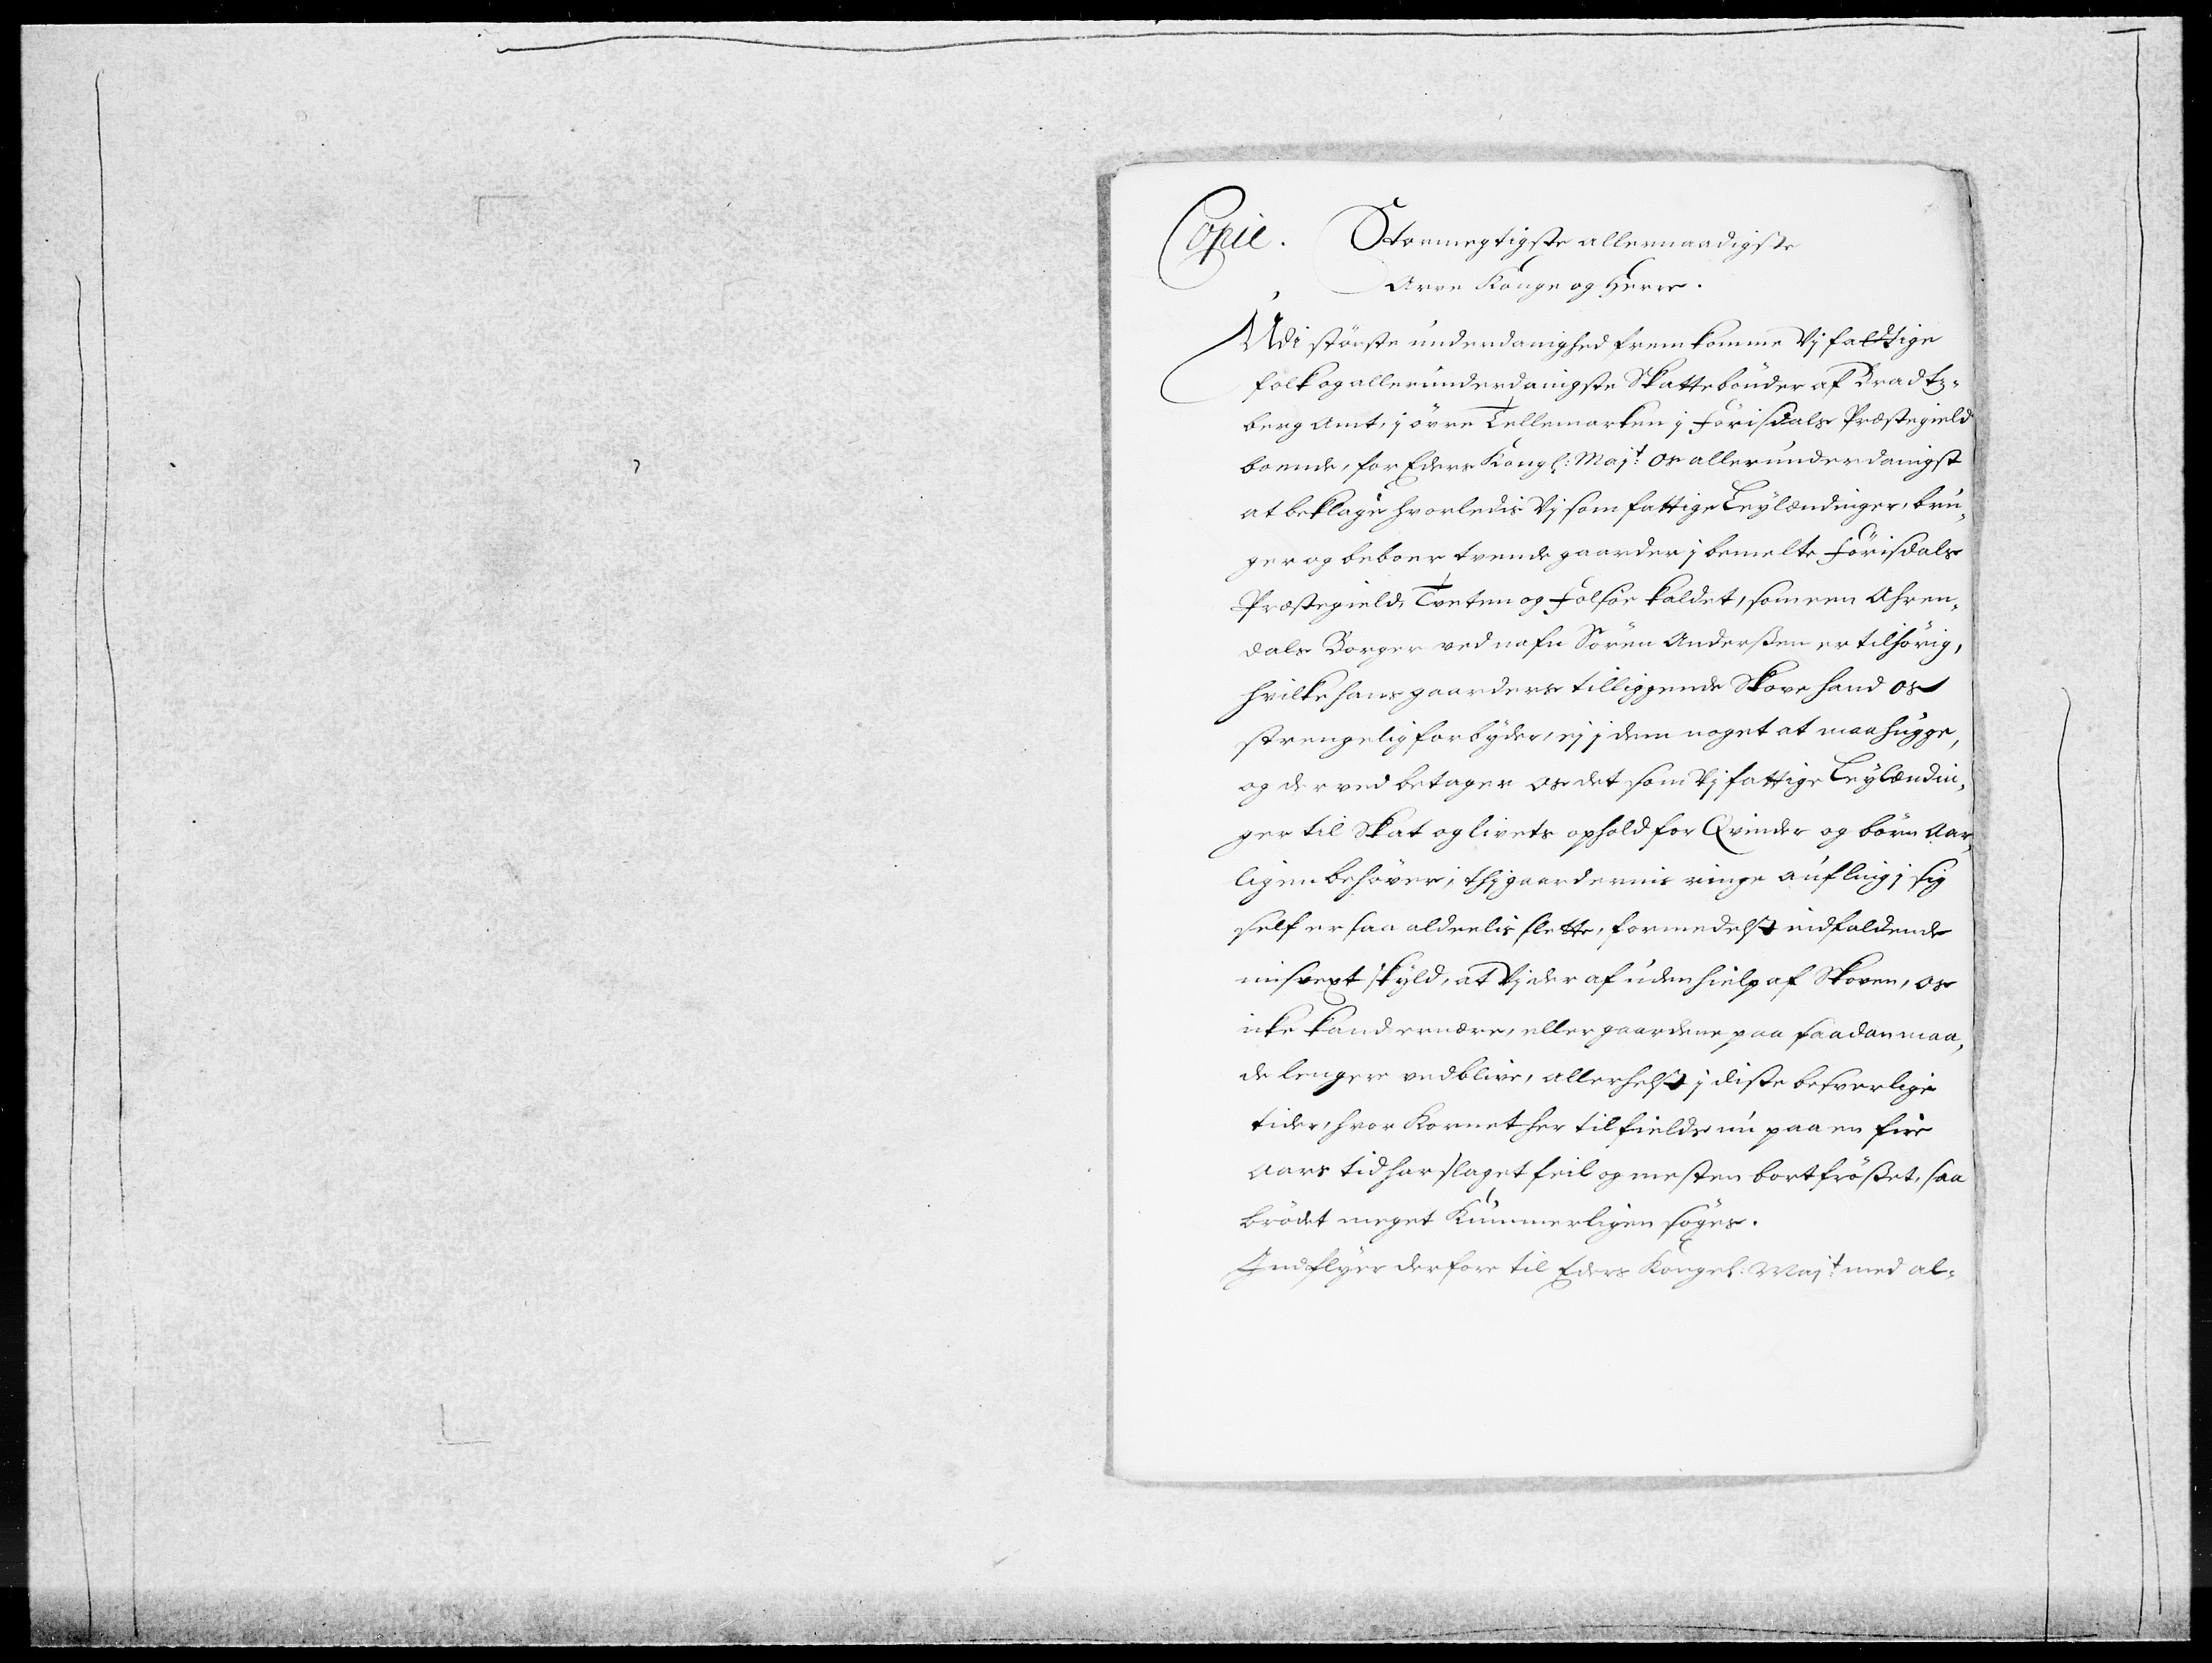 Copie. Stormegtigste allernaadigste
Arve Konge og Herre.
Udi störste underdanighed fremkomme Vj fattige
folk og allerunderdanigste Skattebönder af Bradtz-
berg Amt, j övre Tellemarken j Förisdals Præstegield
boende, for Eders Kongl: Maj:t os allerunderdanigst
at beklage hvorledis Vj som fattige Leylændinger, bru-
ger og beboer tvende gaarder j bemelte Förisdals
Præstegield, Tveten og Folsöe kaldet, som en Ahren-
dals Borger ved nafn Sören Anderßen er tilhörig,
hvilke hans gaarders tilliggende Skove hand os
strengelig forbyder, ej j dem noget at maa hugge,
og der ved betager os det som Vj fattige Leylændin-
ger til Skat og livets ophold for Qvinder og börn Aar-
ligen behöver, thj gaardernis ringe aufling j sig
self er saa aldeelis slette, formedelst indfaldende
misvext skyld, at Vj der af uden hielp af Skoven, os
icke kand ernære, eller gaardene paa saadan maa-
de lengere vedblive, allerhelst j diste besverlige
tider, hvor Kornet her til fields nu paa en fire
aars tid har slaget feil og mesten bortfrößet, saa
brödet meget Kummerligen söges.
Indflyer derfore til Eders Kongel: Maj:t med al-